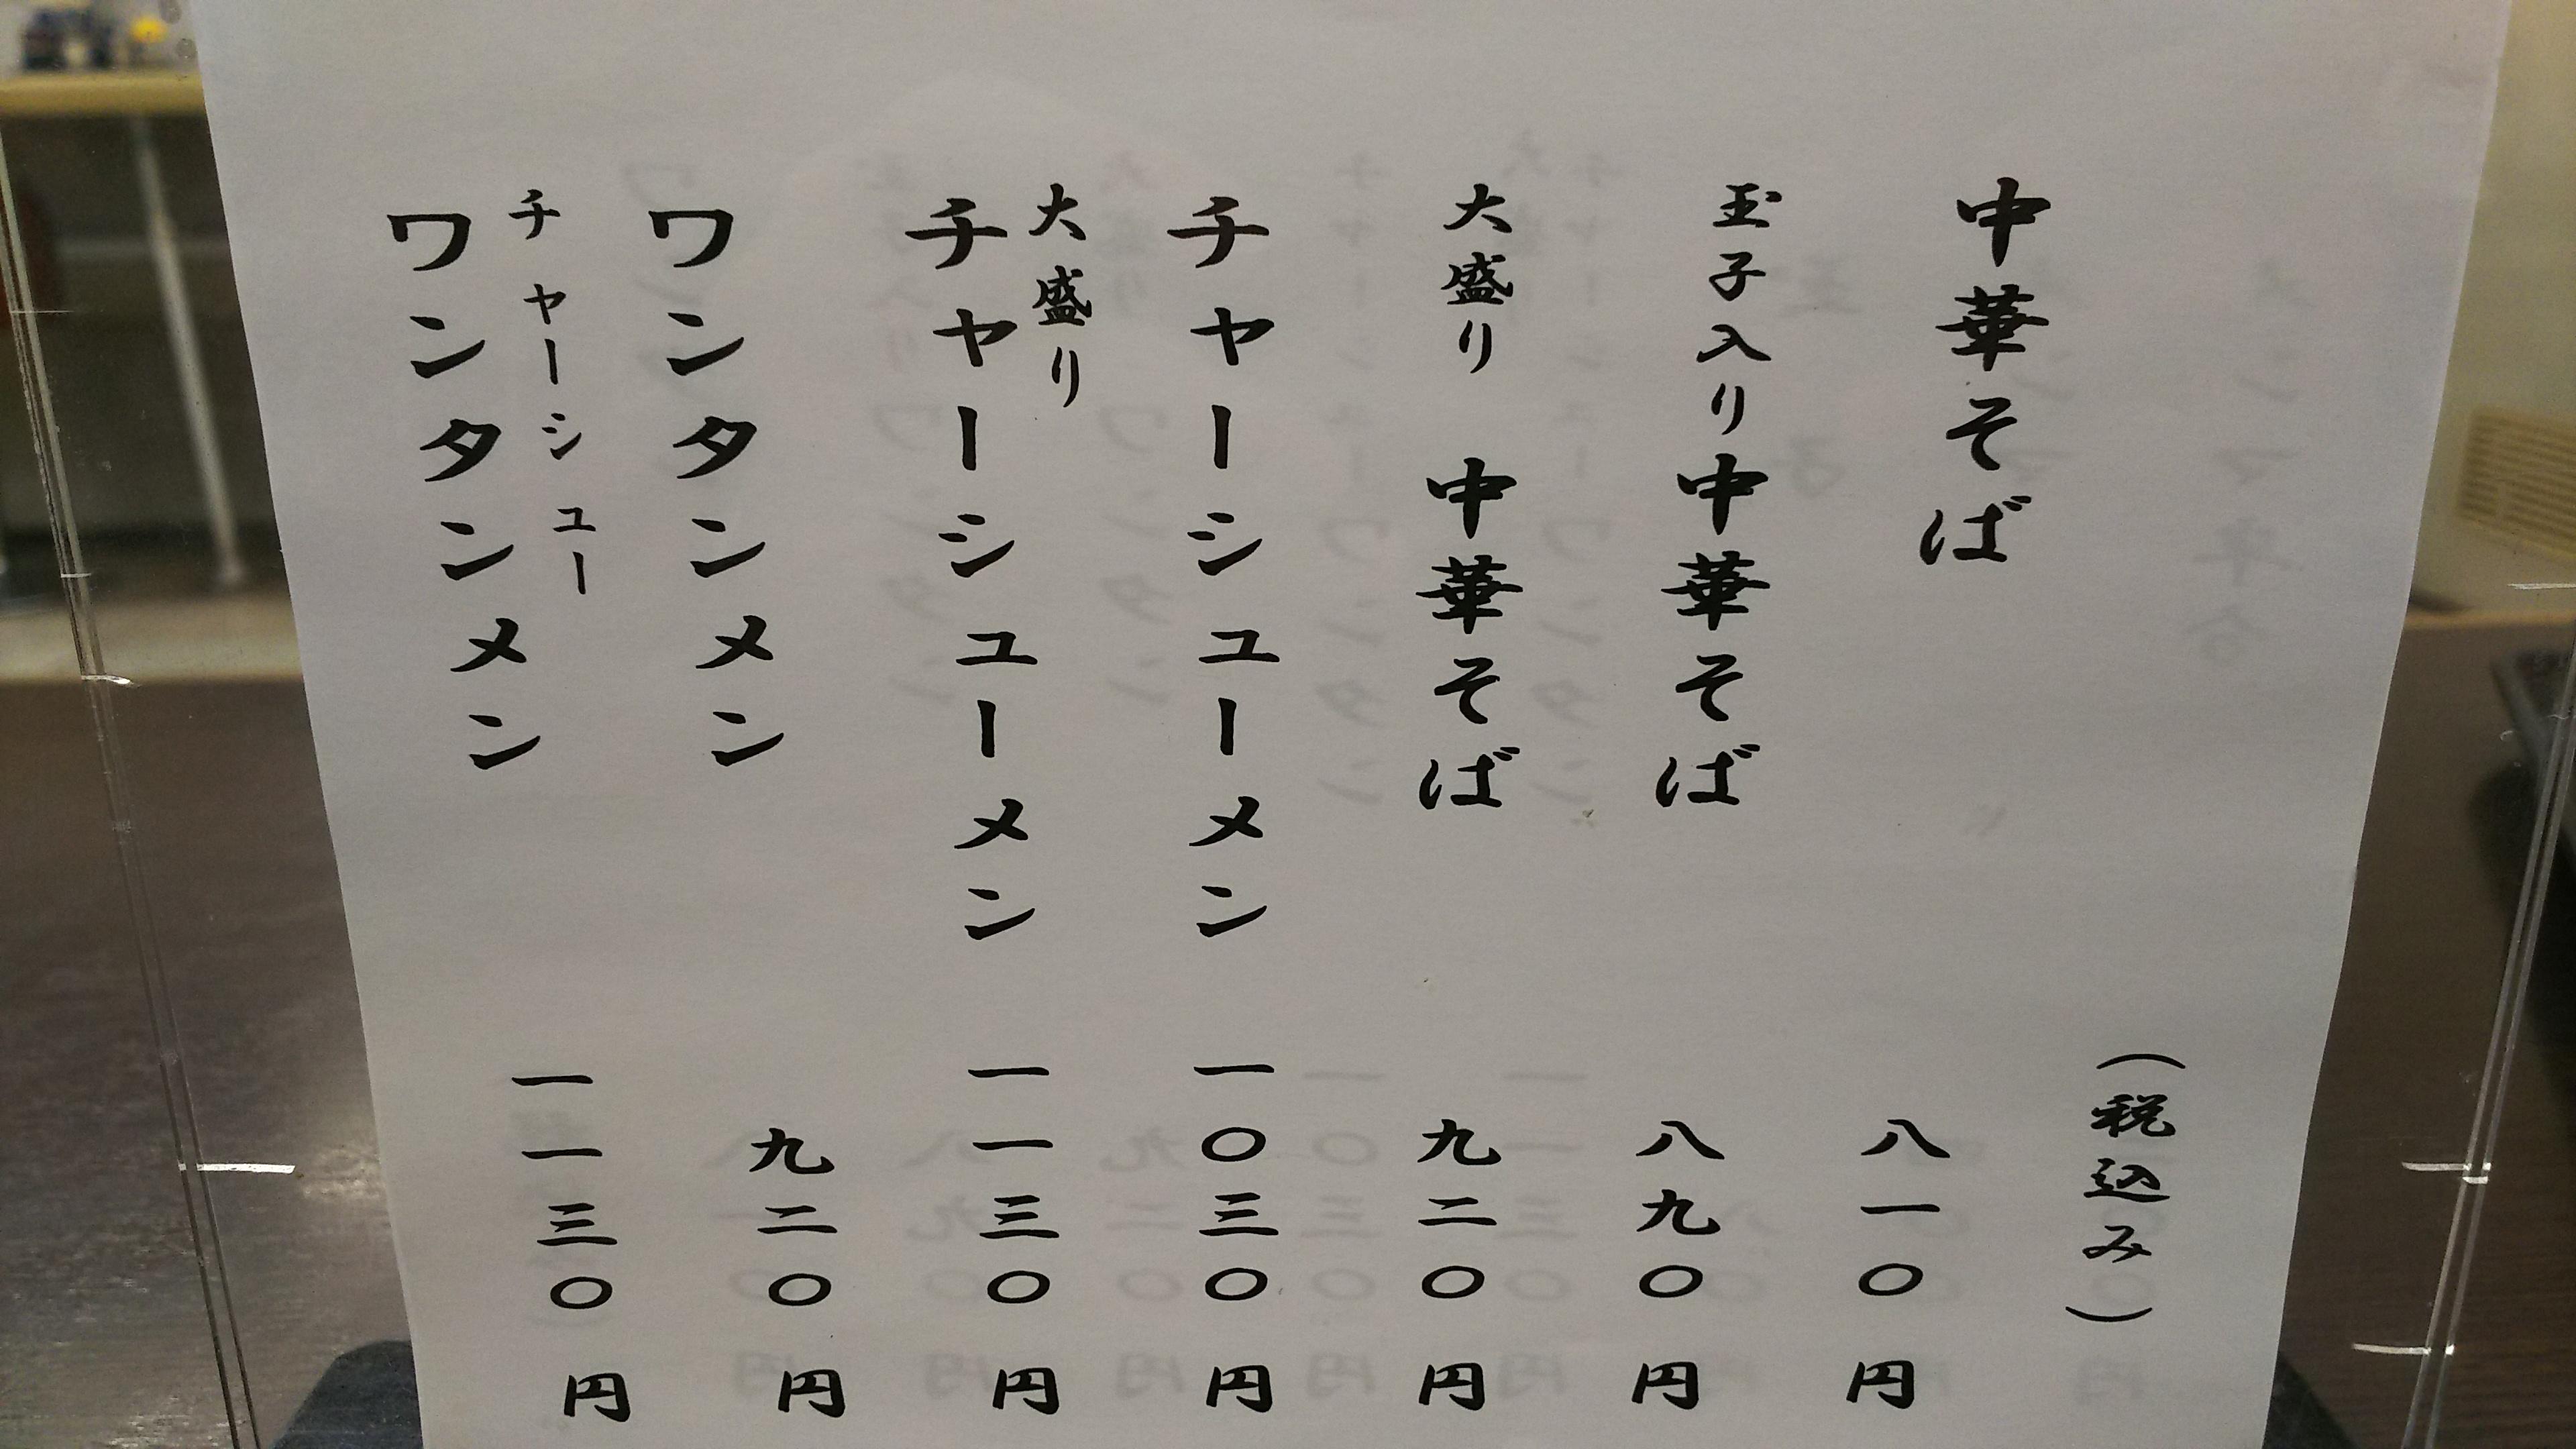 （税込み）
中華そば 八一〇円
玉子入り中華そば 八九〇円
大盛り 中華そば 九二〇円
チャーシューメン 一〇三〇円
大盛り
チャーシューメン 一一三〇円
ワンタンメン 九二〇円
チャーシュー
ワンタンメン 一一三〇円